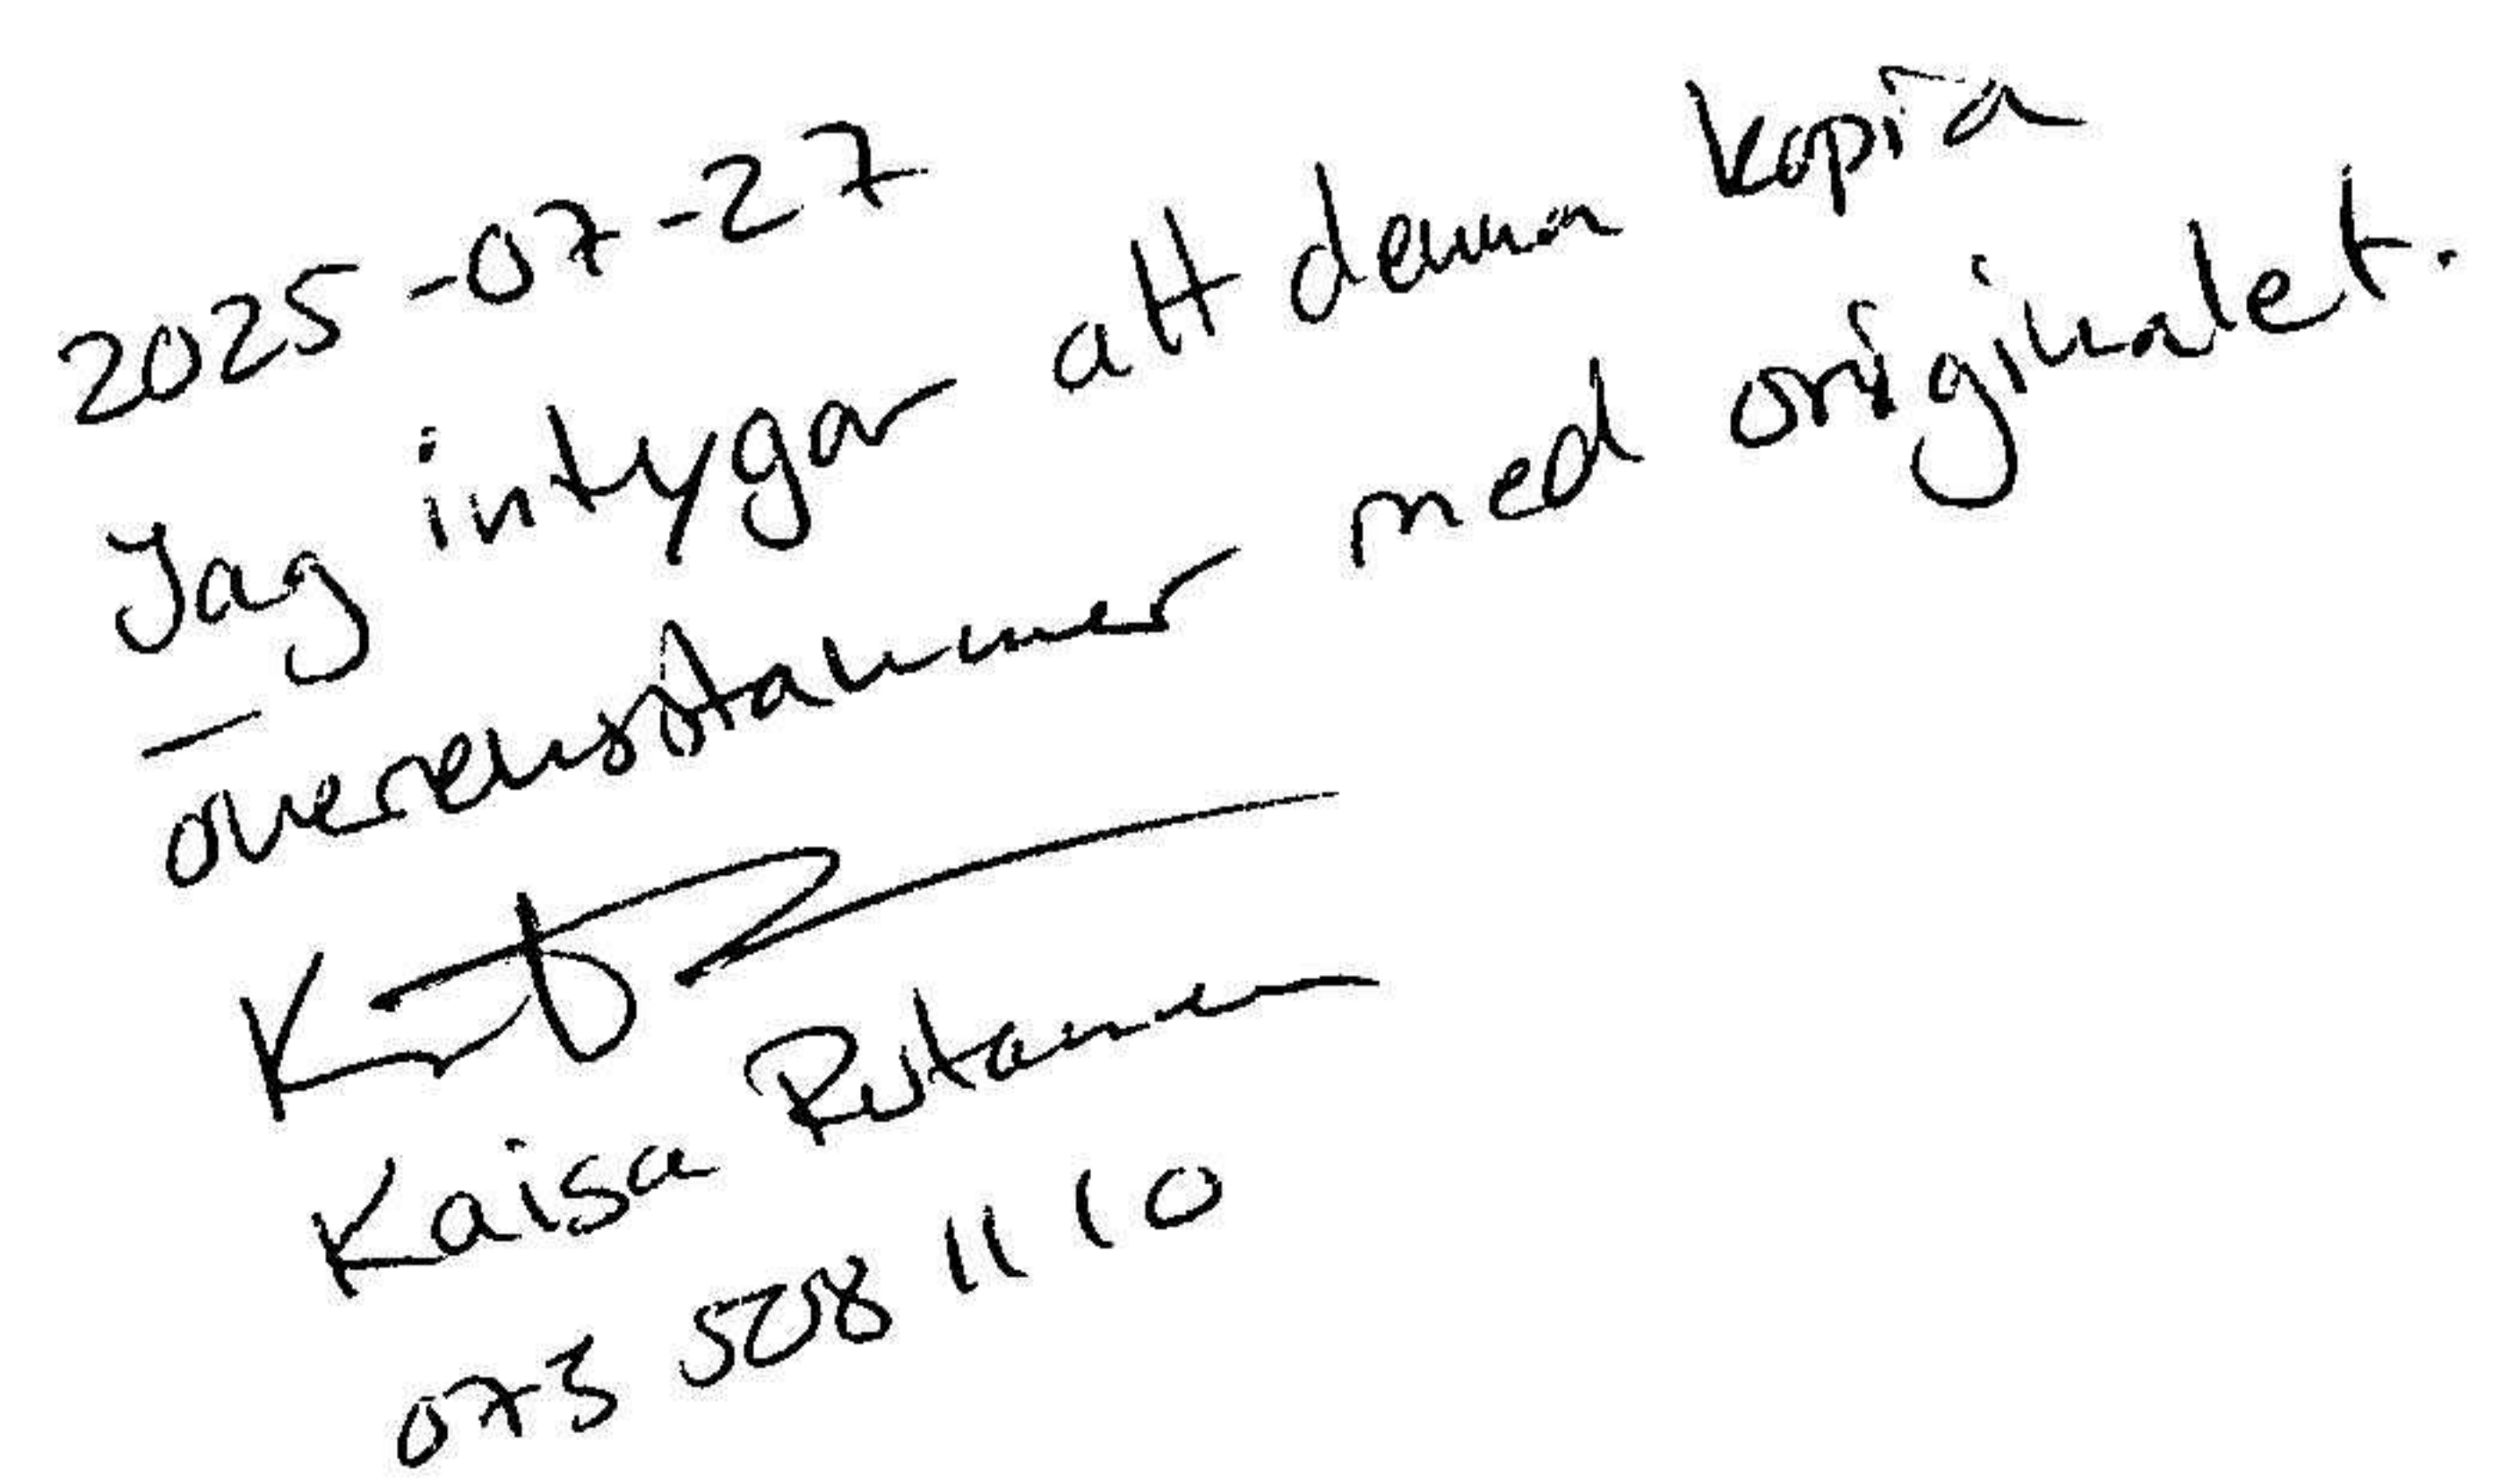 2025-07-27
Jag intygar att denna kopia
överensstämmer med originalet.
Kaisa Rutanen
073 508 11 10